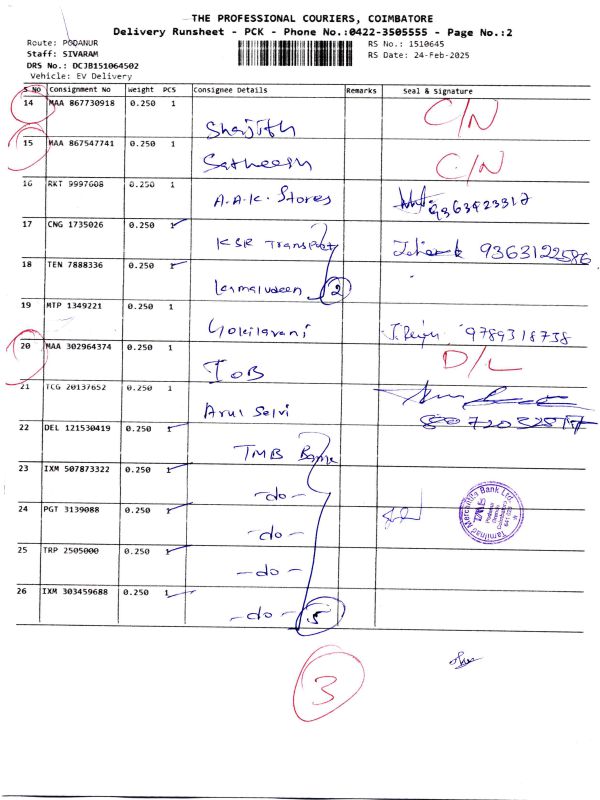 THE PROFESSIONAL COURIERS, COIMBATORE
Delivery Runsheet - PCK - Phone No.:0422-3505555 - Page No.:2
Route: PODANUR
Staff: SIVARAM
DRS No.: DCJB151064502
Vehicle: EV Delivery
RS No.: 1510645
RS Date: 24-Feb-2025
S No Consignment No Weight PCS Consignee Details Remarks Seal & Signature
14 MAA 867730918 0.250 1 C/N
Shaijith
15 MAA 867547741 0.250 1 C/N
Satheesh
16 RKT 9997608 0.250 1
A.A.K. Stores 9363923317
17 CNG 1735026 0.250 1
KSR Transport 9363122586
18 TEN 7888336 0.250 1
2
19 MTP 1349221 0.250 1
Gokilavani 9789318738
20 MAA 302964374 0.250 1 D/L
IOB
21 TCG 20137652 0.250 1
Arul Selvi
22 DEL 121530419 0.250 1
TMB Bank
23 IXM 507873322 0.250 1
-do-
24 PGT 3139088 0.250 1
-do-
Tamilnad Mercantile Bank Ltd.
TMB
25 TRP 2505000 0.250 1
-do-
26 IXM 303459688 0.250 1
-do- 5
3